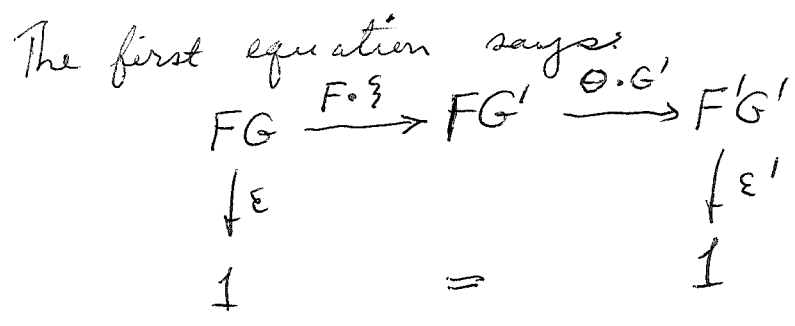 The first equation says:
F·ξ θ·G'
FG → FG' → F'G'
↓ε ↓ε'
1 = 1